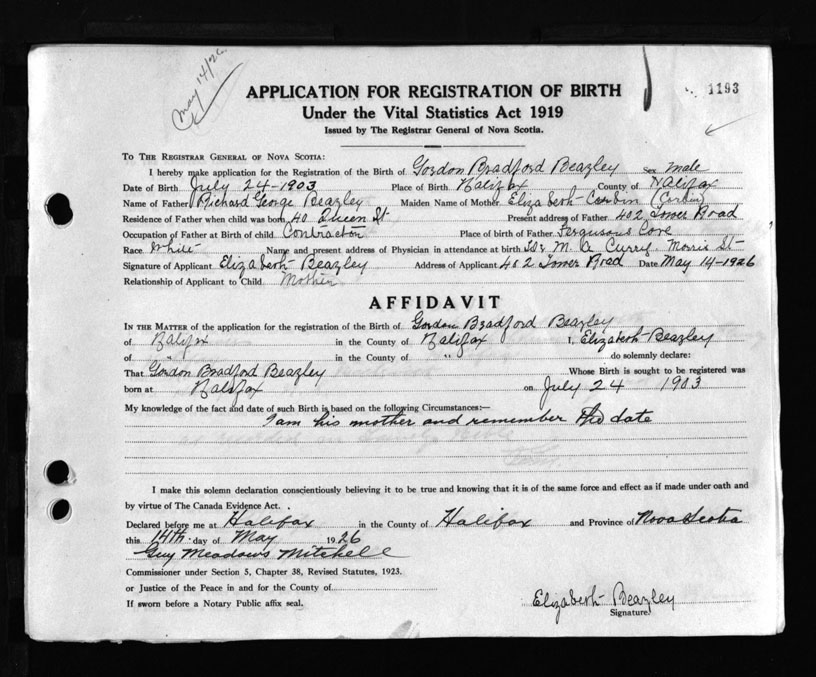 May 14/26
1193
APPLICATION FOR REGISTRATION OF BIRTH
Under the Vital Statistics Act 1919
Issued by The Registrar General of Nova Scotia.
To The Registrar General of Nova Scotia:
I hereby make application for the Registration of the Birth of Gordon Bradford Beazley Sex male
Date of Birth July 24-1903 Place of Birth Halifax County of Halifax
Name of Father Richard George Beazley Maiden Name of Mother Elizabeth Corbin (Corbin)
Residence of Father when child was born 40 Queen St Present address of Father 402 Tower Road
Occupation of Father at Birth of child Contractor Place of birth of Father Fergusons Cove
Race White Name and present address of Physician in attendance at birth Dr M. A Curry Morris St
Signature of Applicant Elizabeth Beazley Address of Applicant 402 Tower Road Date May 14-1926
Relationship of Applicant to Child Mother
AFFIDAVIT
In the Matter of the application for the registration of the Birth of Gordon Bradford Beazley
of Halifax in the County of Halifax I, Elizabeth Beazley
of " in the County of " do solemnly declare:
That Gordon Bradford Beazley Whose Birth is sought to be registered was
born at Halifax on July 24 1903
My knowledge of the fact and date of such Birth is based on the following Circumstances:—
I am his mother and remember the date
I make this solemn declaration conscientiously believing it to be true and knowing that it is of the same force and effect as if made under oath and
by virtue of The Canada Evidence Act.
Declared before me at Halifax in the County of Halifax and Province of Nova Scotia
this 14th day of May 1926
Guy Meadows Mitchell
Commissioner under Section 5, Chapter 38, Revised Statutes, 1923.
or Justice of the Peace in and for the County of
If sworn before a Notary Public affix seal.
Elizabeth Beazley
Signature